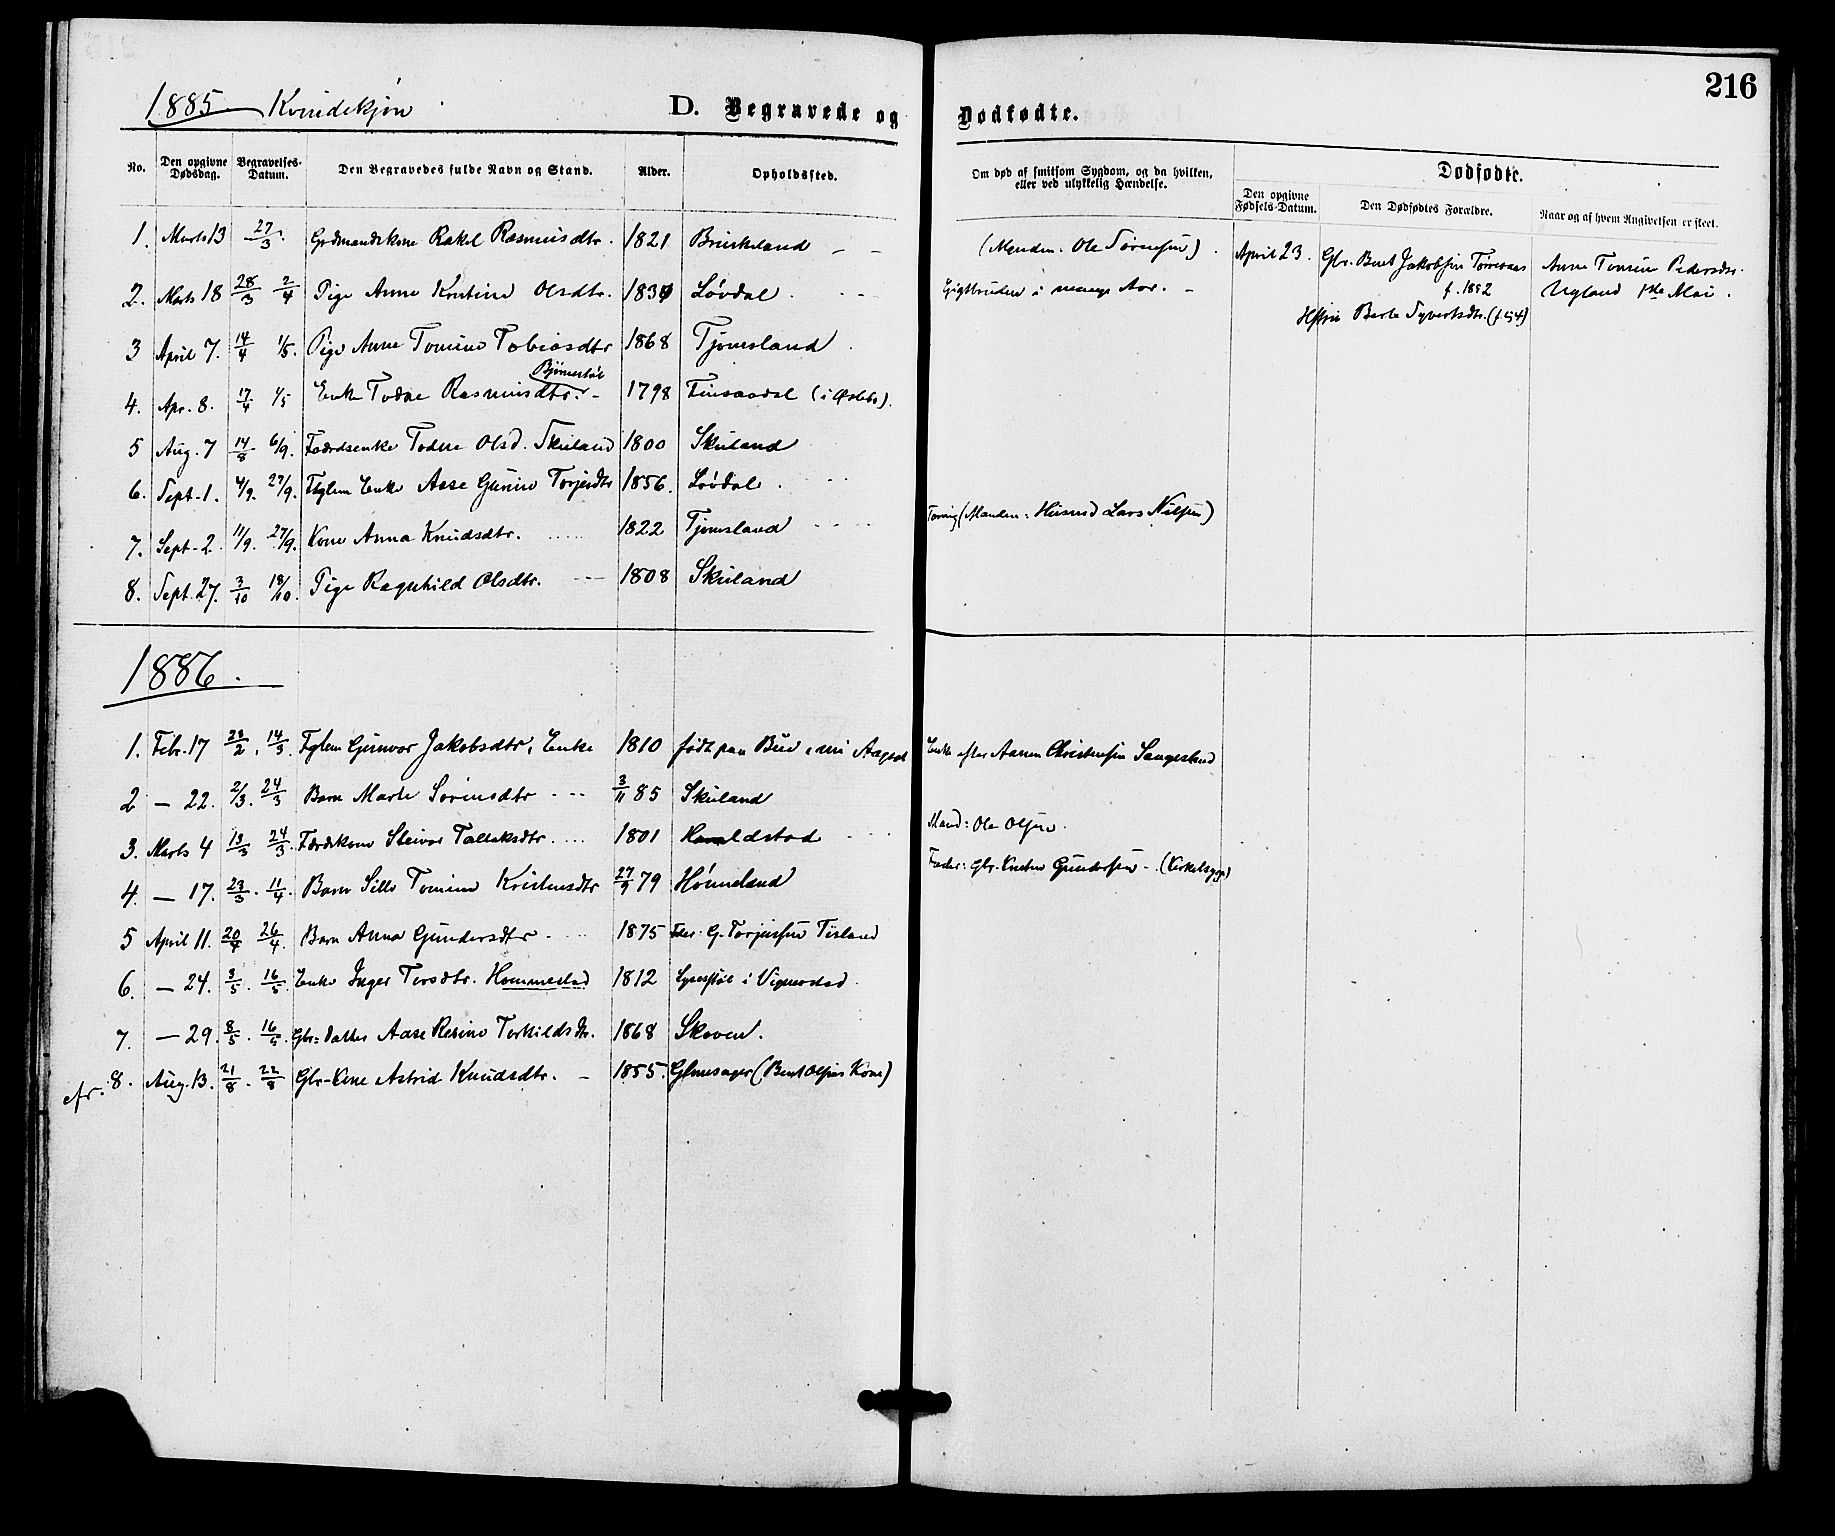 216
1885 Kvindekjøn
D. Begravede og Dødfødte.
No. Den opgivne Dødsdag. Begravelses-Datum. Den Begravedes fulde Navn og Stand. Alder. Opholdssted. Om død af smitsom Sygdom, og da hvilken, eller ved ulykkelig Hændelse. Dødfødte.
Den opgivne Fødsels-Datum. Den Dødfødtes Forældre. Naar og af hvem Angivelsen er skeet.
1. Marts 13 27/3. Grdmandskone Rakel Rasmusdtr. 1821 Bruskeland (Manden: Ole Sørensen). April 23. Gbr. Bent Jakobsen f. 1852 Anne Tomine Pedersdtr. Ugland 1ste Mai.
2. Marts 18 28/3 2/4 Pige Anne Olsdtr. 1830 Løvdal. i mange Aar. - Hustru Berte Syvertsdtr. (f. 54)
3 April 7. 14/4 1/5. Pige Anne Tomine Tobiasdtr 1868 Tjomsland.
4. Apr. 8. 17/4 1/5 Enke Todne Rasmusdtr. - 1798 Finsaadal
5 Aug. 7 14/8 6/9. Todne Olsd. Skuland 1800 Skuland
6. Sept. 1. 4/9. 27/9. Enke Aase Gurine Torjesdtr 1856. Løvdal.
7. Sept. 2. 11/9. 27/9. Kone Anna Knudsdtr. 1822 Tjomsland (Manden: Husmd Lars Nilsen)
8. Sept. 27. 3/10 18/10. Pige Ragnhild Olsdtr. 1808 Skuland
1886.
1. Febr. 17 23/2. 14/3. Fglem Gunvor Jakobsdtr, Enke 1810 født paa Enke efter Aanen Christensen
2 — 22. 2/3. 24/3 Barn Marte Sørensdtr 3/11 85 Skuland
3. Marts 4 13/3 24/3. Steivor Tallaksdtr. 1801 Haraldstad Mand: Ole Olsen.
4. — 17. 23/3. 11/4. Barn Sille Tomine Kristensdtr 27/9 79 Hønneland Fader: Gbr. Gundersen - (Kirkesgr)
5 April 11. 20/4 26/4. Barn Anna Gundersdtr 1875 Fder. G. Torjussen Tisland
6. — 24. 3/5. 16/5 Enke Inger Hommestad 1812 i Vigmostad.
7. — 29. 8/5. 16/5. Gbr = datter Aase Resine Terkildsdtr. 1868 Skoven.
8. Aug. 13. 21/8. 22/8 Gbr-Kone Astrid Knudsdtr. - 1855. (Bent Olsens Kone)